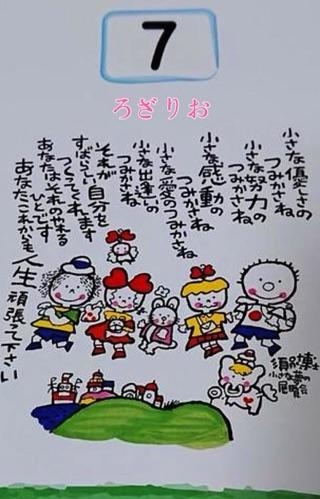 7
ろざりお
小さな優しさの
つみかさね
小さな努力の
つみかさね
小さな感動の
つみかさね
小さな愛のつみかさね
小さな出逢いの
つみかさね
それが
すばらしい自分を
つくってくれます
あなたはそれのやれる
ひとです
あなたこれからも
人生頑張って下さい
小さな夢の
展覧会